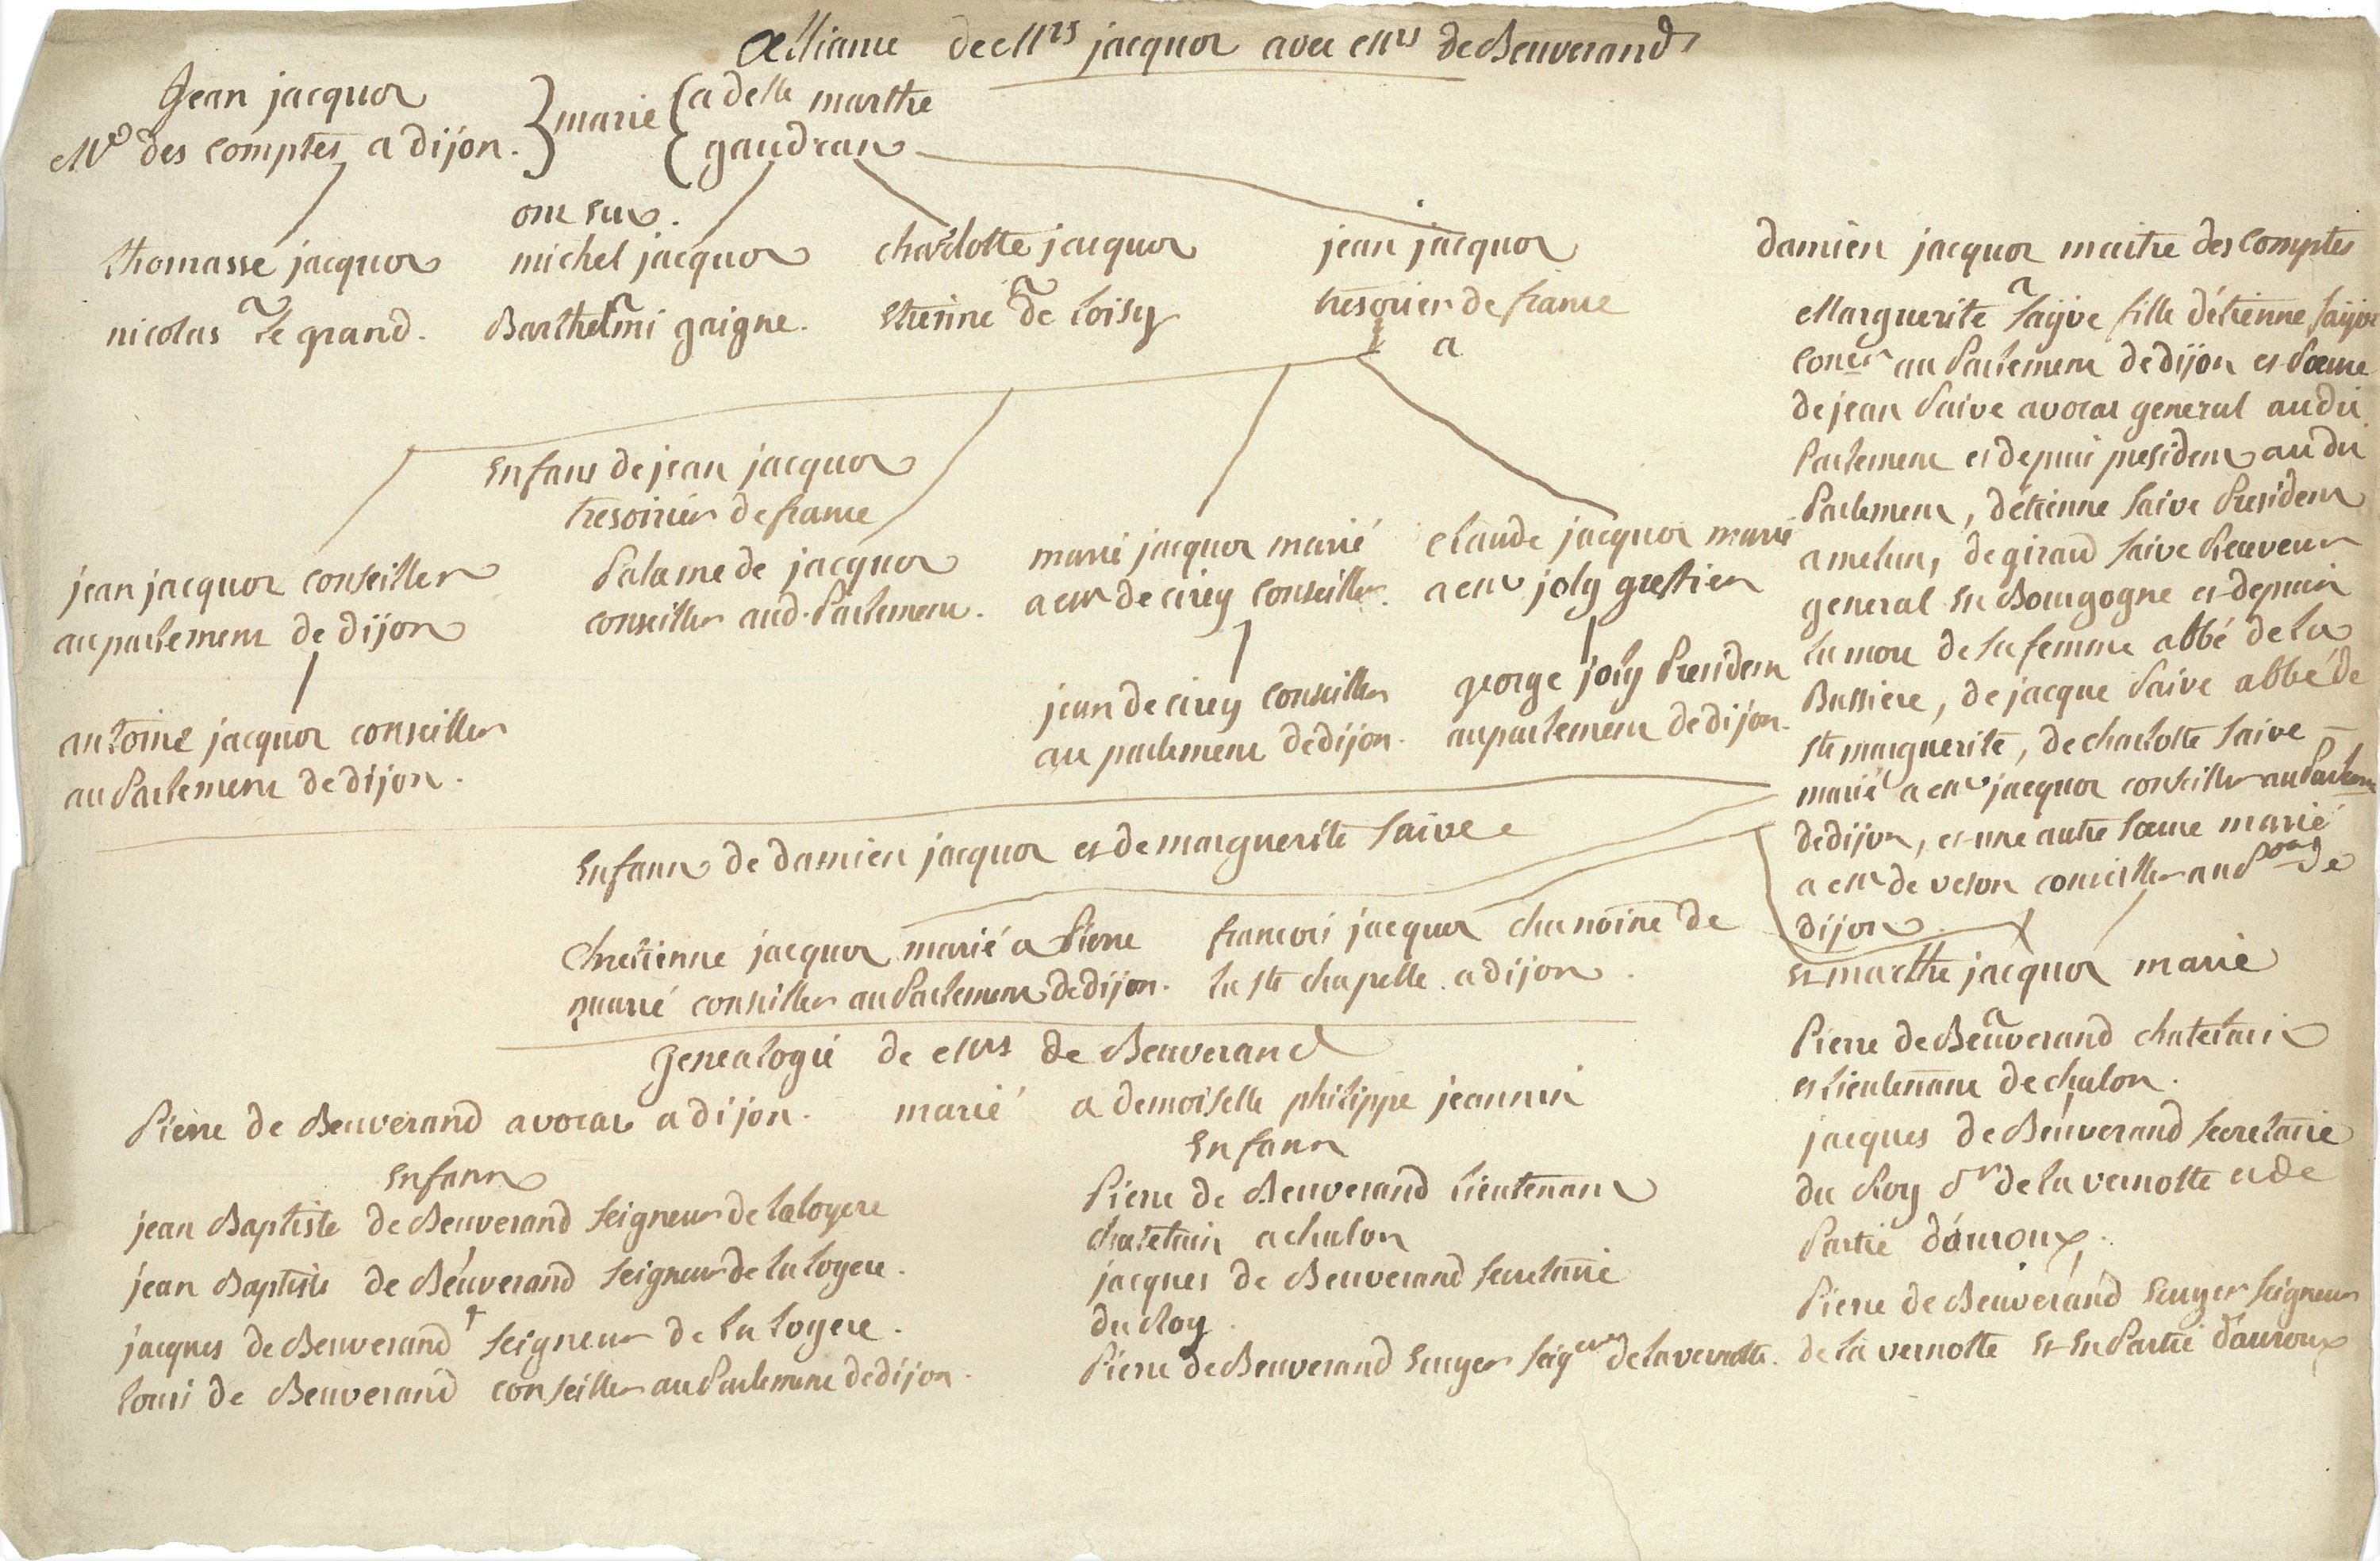 alliance de Mrs jacquot avec Mrs de Beuverand
Jean jacquot
Me des comptes a dijon.
marié
a delle marthe
gaudran
ont eu.
thomasse jacquot
a
nicolas le grand.
michel jacquot
a
Barthelmi gaigne.
charlotte jacquot
a
etienne de loisy
jean jacquot
tresorier de france
a
damien jacquot maitre des comptes
a
Marguerite sayve fille d'etienne sayve
Coner au Parlement de dijon et soeure
de jean saive avocat general audit
Parlement et depuis president audit
Parlement, d'etienne saive President
a melun, de giraud saive Receveur
general en Bourgogne et depuis
la mort de sa femme abbé de la
Bussiere, de jacque saive abbé de
ste marguerite, de charlotte saive
marié a Mr jacquot conseiller au Parlem
de dijon, et une autre soeure marié
a Mr de veson conseiller au de
dijon
et marthe jacquot marié
a
Pierre de Beuverand chatelain
et lieutenant de chalon.
jacques de Beuverand secretaire
du Roy Sr de la vernotte et de
Partie d'auroux.
Pierre de Beuverand Ecuyer seigneur
de la vernotte et en Partie d'auroux
enfans de jean jacquot
tresoirier de france
jean jacquot conseiller
au parlement de dijon
Palamede jacquot
conseiller aud. Parlement.
marie jacquot marié
a Mr de cirey conseiller.
claude jacquot marié
a Mr joly greffier
antoine jacquot conseiller
au Parlement de dijon.
jean de cirey conseiller
au parlement de dijon.
george joly President
au parlement de dijon.
enfans de damien jacquot et de marguerite saive
Chretienne jacquot marié a Pierre
quarré conseiller au Parlement de dijon.
francois jacquot chanoine de
la ste chapelle a dijon.
genealogie de Mrs de Beuverand
Pierre de Beuverand avocat a dijon. marié a demoiselle philippe jeannin
enfans
jean Baptiste de Beuverand seigneur de la loyere
jean Baptiste de Beuverand seigneur de la loyere.
jacques de Beuverand seigneur de la loyere.
louis de Beuverand conseiller au Parlement de dijon.
enfans
Pierre de Beuverand lieutenant
chatelain a chalon
jacques de Beuverand secretaire
du Roy.
Pierre de Beuverand Ecuyer seigeur de la vernotte.